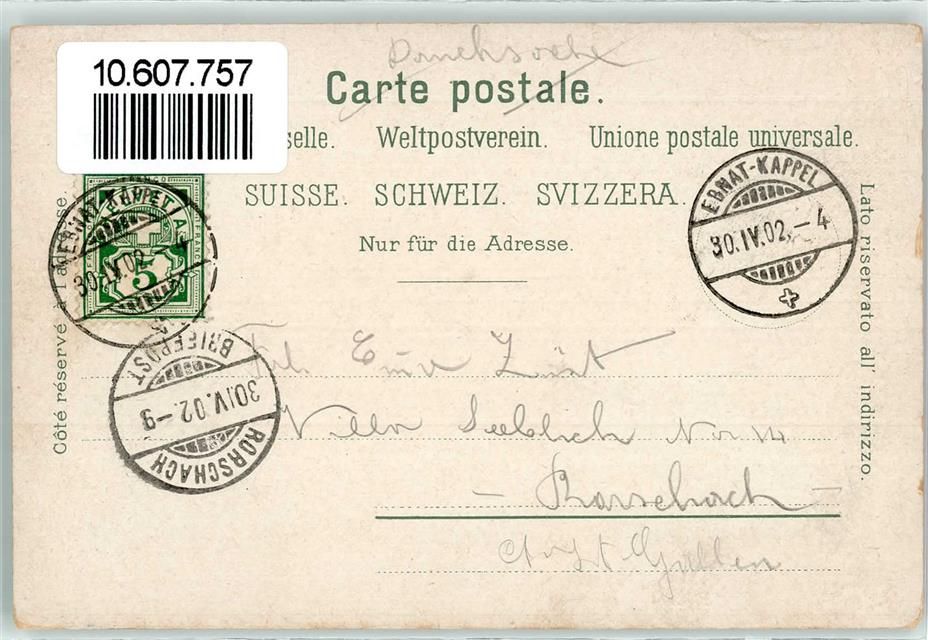 Drucksache
10.607.757
Carte postale.
selle. Weltpostverein. Unione postale universale.
SUISSE. SCHWEIZ. SVIZZERA.
Nur für die Adresse.
Côté réservé à l'adresse.
Lato riservato all' indirizzo.
EBNAT-KAPPEL
30.IV.02.-4
5
EBNAT-KAPPEL
30.IV.02.-4
BRIEFPOST
30.IV.02.-9
RORSCHACH
Züst
Villa Seeblick No 14
- Rorschach -
Ct. St. Gallen